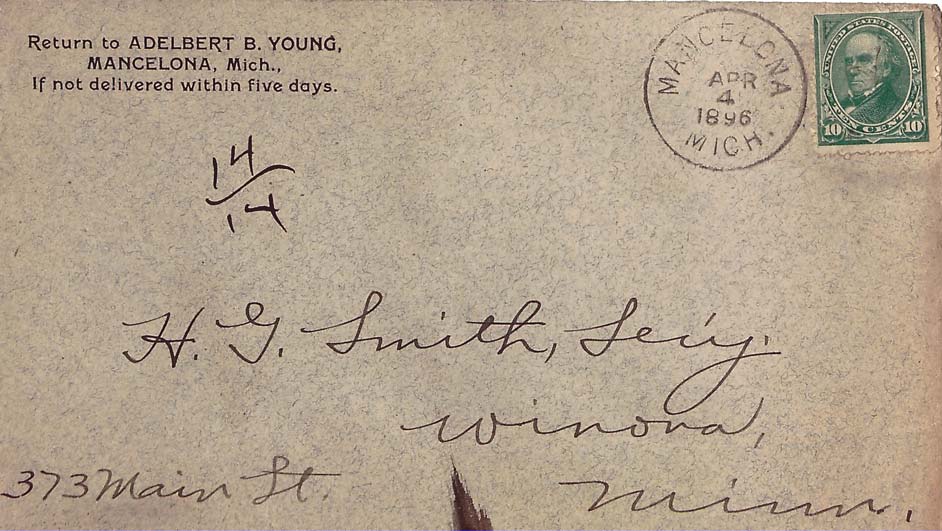 Return to ADELBERT B. YOUNG,
MANCELONA, Mich.,
If not delivered within five days.
MANCELONA
APR
4
1896
MICH.
UNITED STATES POSTAGE
10 TEN CENTS 10
14
14
H. G. Smith, Sec'y.
Winona,
373 Main St.
Minn.